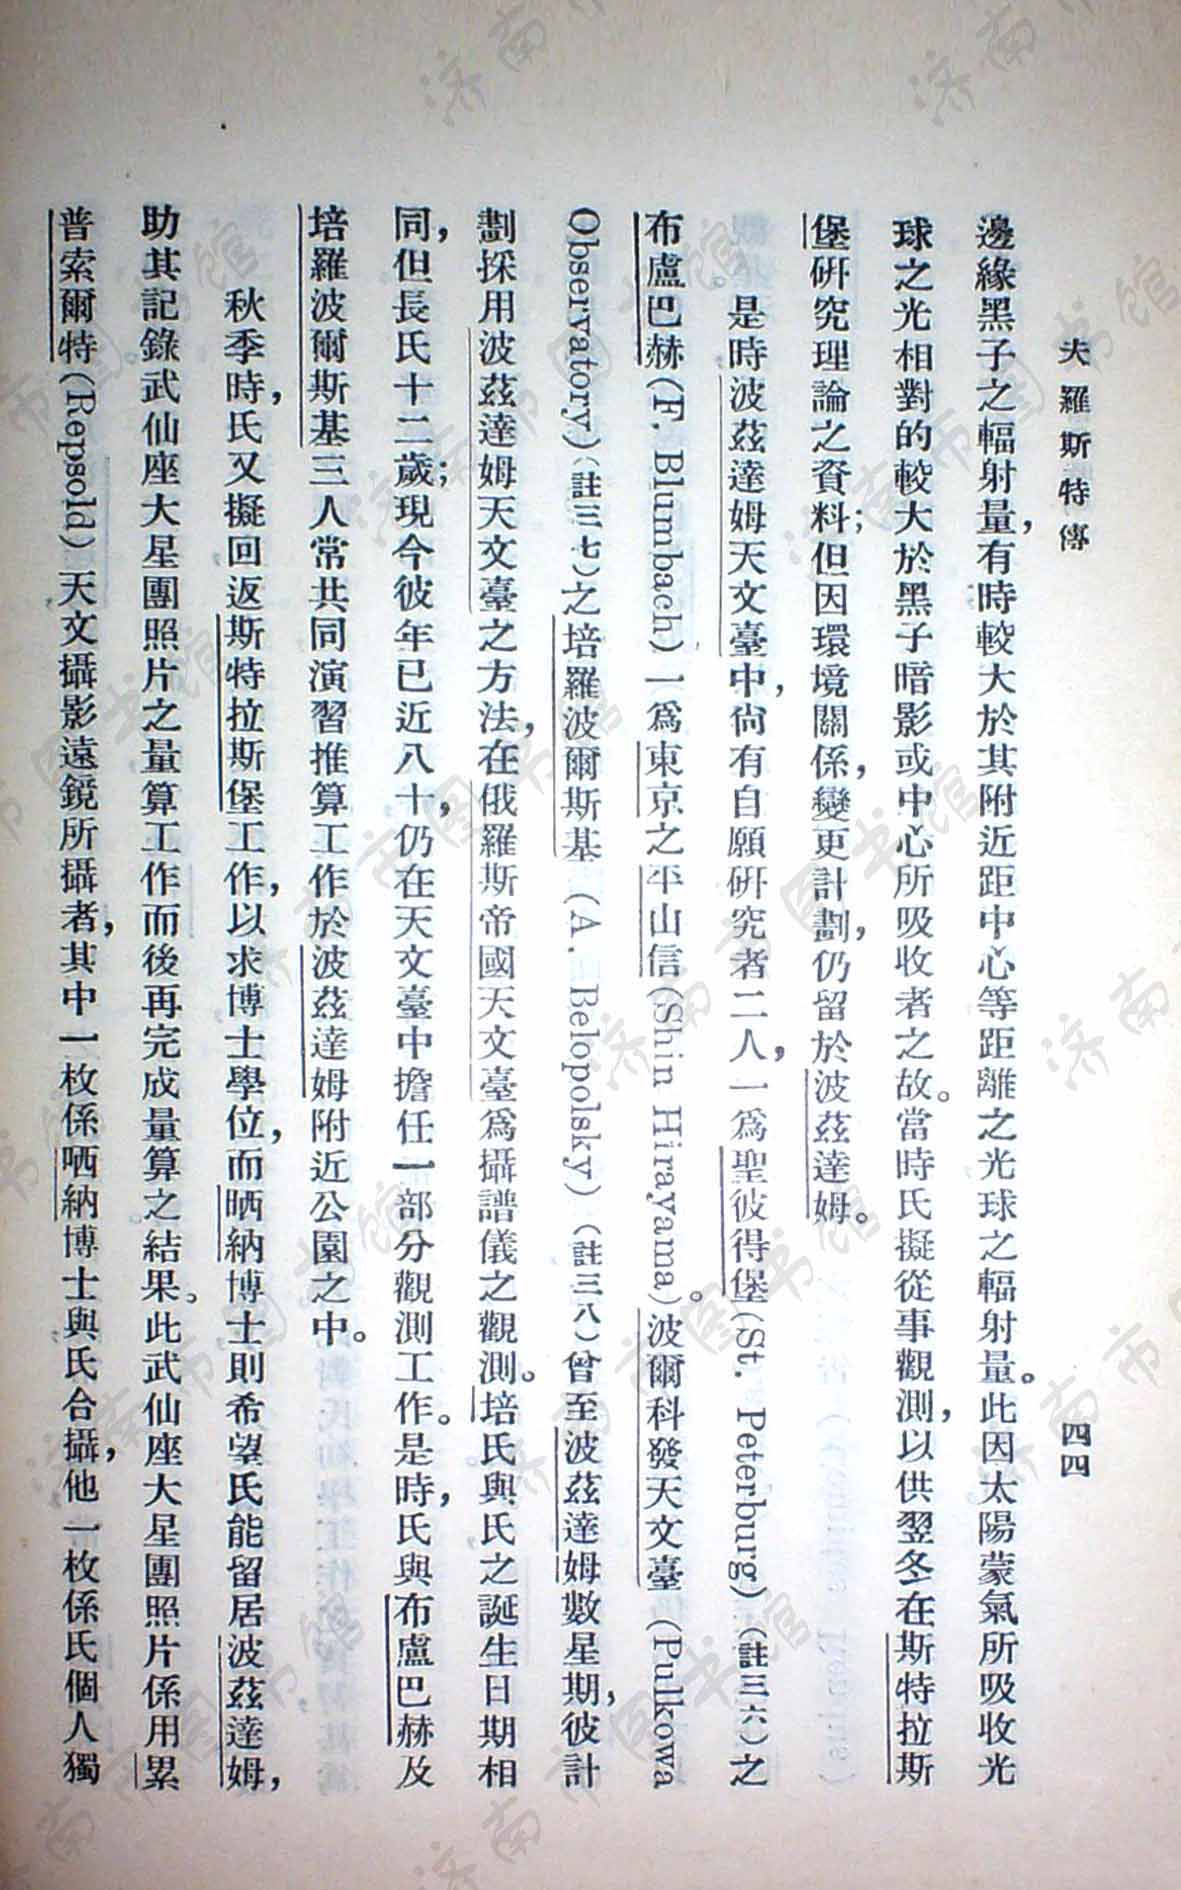 夫羅斯特傳
四四
邊緣黑子之輻射量，有時較大於其附近距中心等距離之光球之輻射量。此因太陽蒙氣所吸收光
球之光相對的較大於黑子暗影或中心所吸收者之故。當時氏擬從事觀測，以供翌冬在斯特拉斯
堡研究理論之資料；但因環境關係，變更計劃，仍留於波茲達姆。
是時波茲達姆天文臺中，尙有自願研究者二人，一爲聖彼得堡(St. Peterburg)（註三六）之
布盧巴赫(F. Blumbach)一爲東京之平山信(Shin Hirayama)。波爾科發天文臺 (Pulkowa
Observatory)（註三七）之培羅波爾斯基 (A. Belopolsky)（註三八）曾至波茲達姆數星期，彼計
劃採用波茲達姆天文臺之方法，在俄羅斯帝國天文臺爲攝譜儀之觀測。培氏與氏之誕生日期相
同，但長氏十二歲；現今彼年已近八十，仍在天文臺中擔任一部分觀測工作。是時，氏與布盧巴赫及
培羅波爾斯基三人常共同演習推算工作於波茲達姆附近公園之中。
秋季時，氏又擬回返斯特拉斯堡工作，以求博士學位，而晒納博士則希望氏能留居波茲達姆，
助其記錄武仙座大星團照片之量算工作而後再完成量算之結果。此武仙座大星團照片係用累
普索爾特(Repsold)天文攝影遠鏡所攝者，其中一枚係晒納博士與氏合攝，他一枚係氏個人獨
济南市图书馆